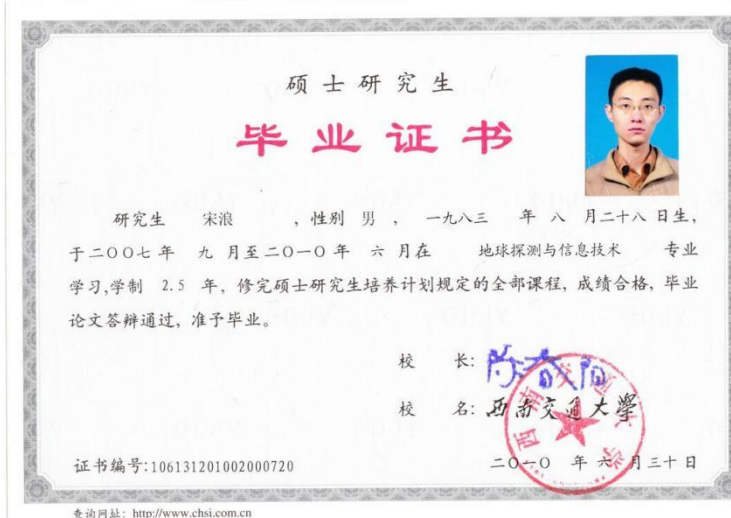 硕士研究生
毕业证书
研究生 宋浪 ，性别 男 ， 一九八三 年 八 月二十八 日生，
于二〇〇七 年 九 月至二〇一〇 年 六 月在 地球探测与信息技术 专业
学习,学制 2.5 年，修完硕士研究生培养计划规定的全部课程，成绩合格，毕业
论文答辩通过，准予毕业。
校 长:
校 名: 西南交通大學
西南交通大学
证书编号:106131201002000720
二〇一〇 年 六 月三十日
查询网址：http://www.chsi.com.cn